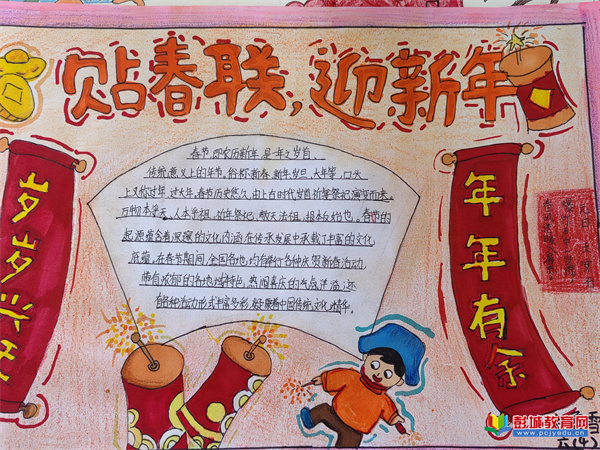 贴春联,迎新年
岁岁兴旺
春节,即农历新年,是一年之岁首、
传统意义上的年节。俗称新春、新年、岁旦、大年等,口头
上又称过年、过大年。春节历史悠久,由上古时代岁首祈年祭祀演变而来。
万物本乎天、人本乎祖,祈年祭祀、敬天法祖,报本反始也。春节的
起源蕴含着深邃的文化内涵,在传承发展中承载了丰富的文化
底蕴。在春节期间,全国各地均有举行各种庆贺新春活动,
带有浓郁的各地域特色,热闹喜庆的气氛洋溢;这
些各种活动形式丰富多彩,凝聚着中国传统文化精华。
年年有余
雪
六(4)
彭城教育网
www.pcjyedu.cn